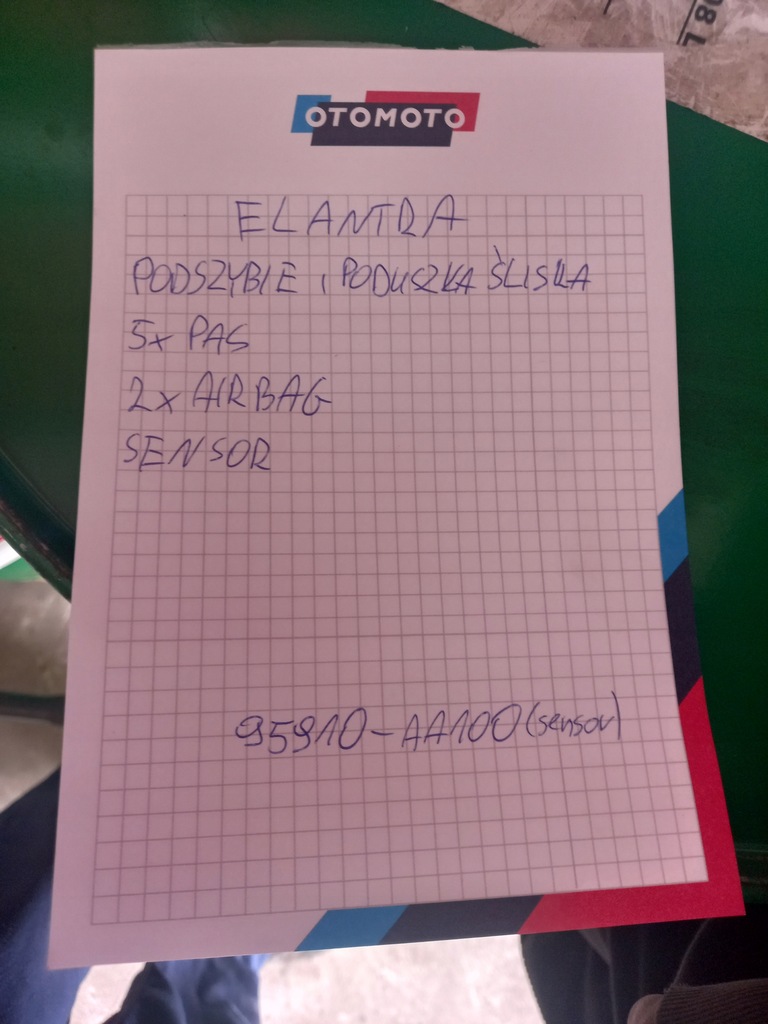 08 L
OTOMOTO
ELANTRA
PODSZYBIE I PODUSZKA ŚLISKA
5x PAS
2x AIRBAG
SENSOR
95910-AA100 (sensor)